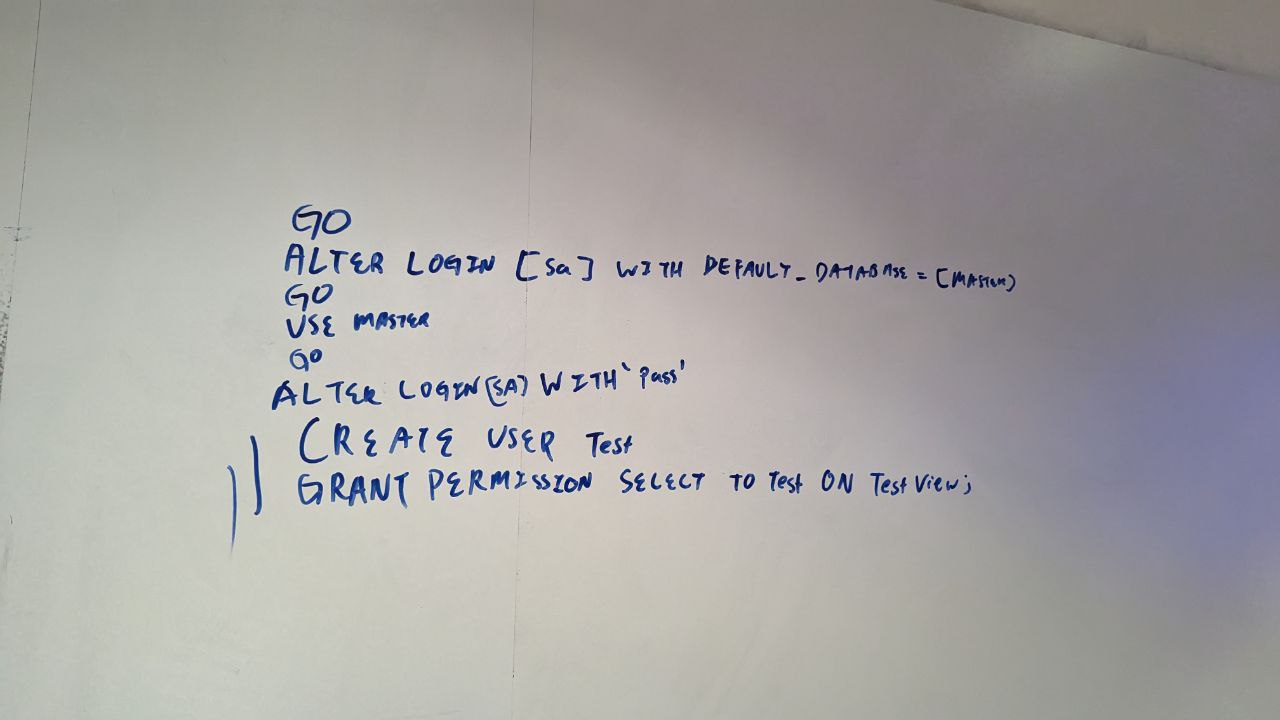 GO
ALTER LOGIN [Sa] WITH DEFAULT_DATABASE = [MASTER]
GO
USE MASTER
GO
ALTER LOGIN [SA] WITH 'Pass'
CREATE USER Test
GRANT PERMISSION SELECT TO Test ON Test View;